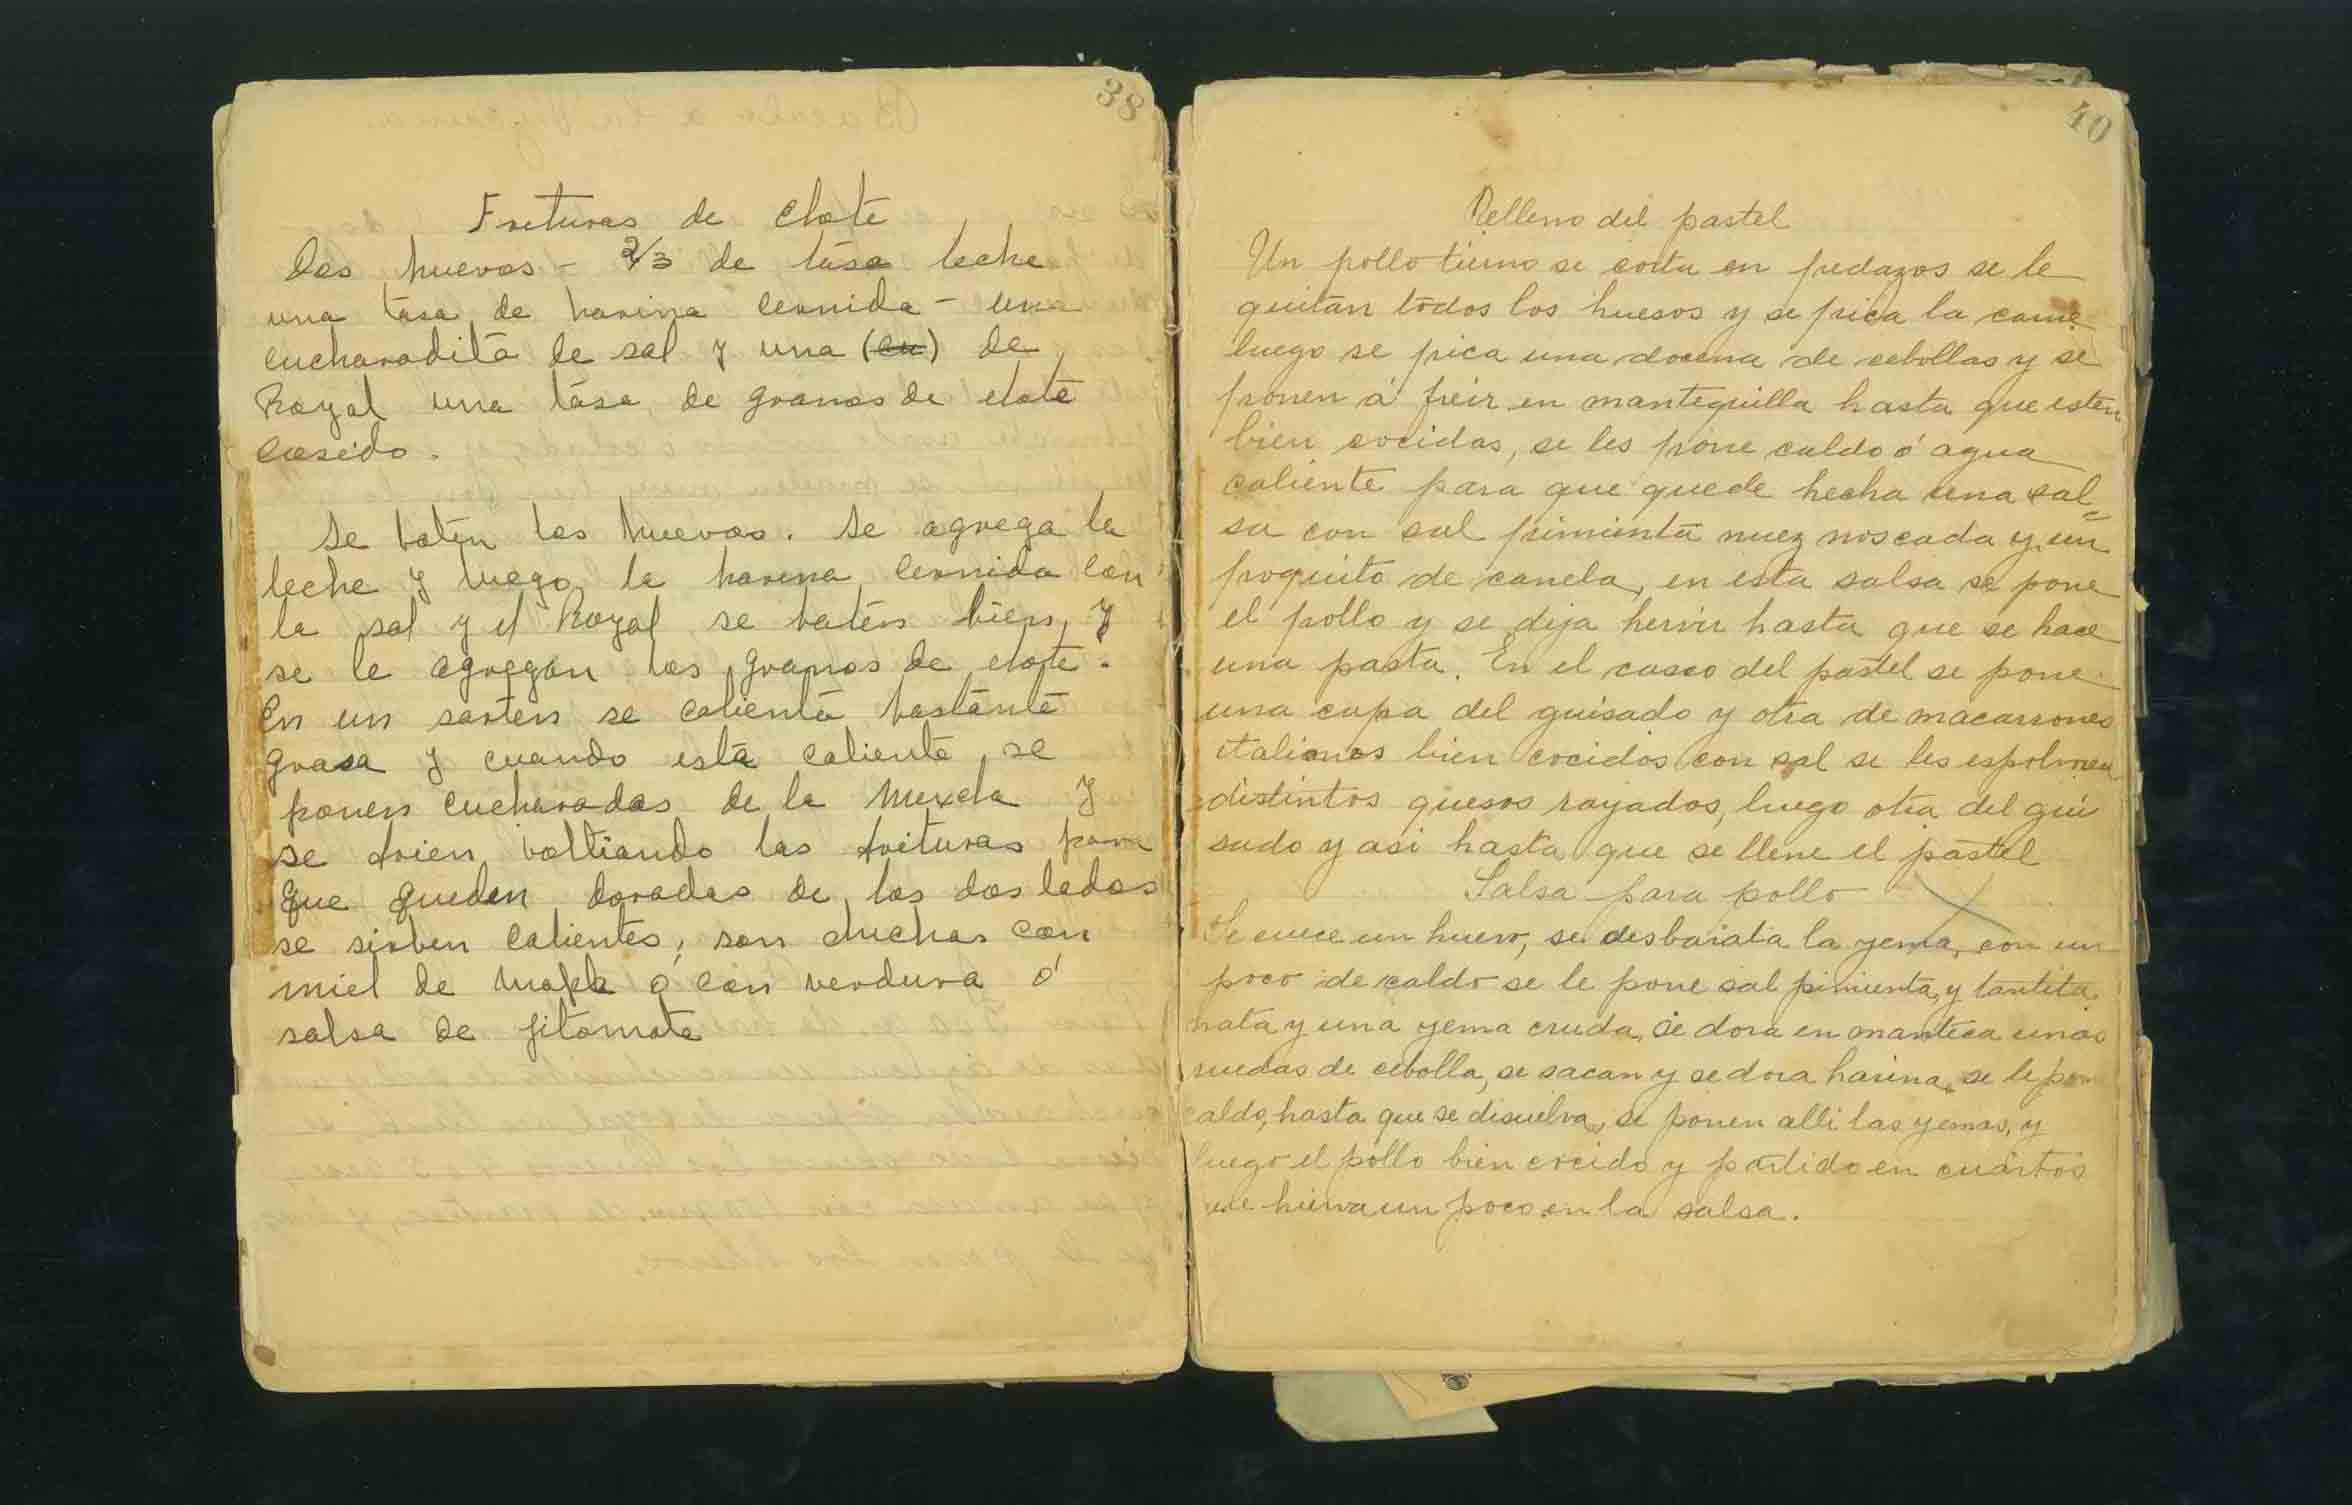 38
Frituras de Elote
Dos huevos - 2/3 de tása leche
una tása de harina cernida - una
cucharadita de sal y una (cu) de
Royal una tása de granos de elote
cosido.
Se baten los huevos. Se agrega la
leche y luego la harina cernida con
la sal y el Royal se baten bien y
se le agregan los granos de elote.
En un sartén se calienta bastante
grasa y cuando está caliente se
ponen cucharadas de la mezcla y
se frien voltiando las frituras para
que queden doradas de los dos lados
se sirben calientes, son muchas con
miel de maple ó con verdura ó
salsa de jitomate
40
Relleno del pastel
Un pollo tierno se corta en pedazos se le
quitan todos los huesos y se pica la carne
luego se pica una docena de cebollas y se
ponen á freir en mantequilla hasta que esten
bien cocidas, se les pone caldo ó agua
caliente para que quede hecha una sal=
sa con sal pimienta nuez noscada y un
poquito de canela, en esta salsa se pone
el pollo y se deja hervir hasta que se hace
una pasta. En el casco del pastel se pone
una capa del guisado y otra de macarrones
italianos bien cocidos con sal se les espolvorea
distintos quesos rayados, luego otra del gui
sado y asi hasta que se llene el pastel
Salsa para pollo
Se cuece un huevo, se desbarata la yema, con un
poco de caldo se le pone sal pimienta, y tantita
nata y una yema cruda, se dora en manteca unas
ruedas de cebolla, se sacan y se dora harina, se le pone
caldo, hasta que se disuelva, se ponen alli las yemas, y
luego el pollo bien cocido y partido en cuartos
que hierva un poco en la salsa.